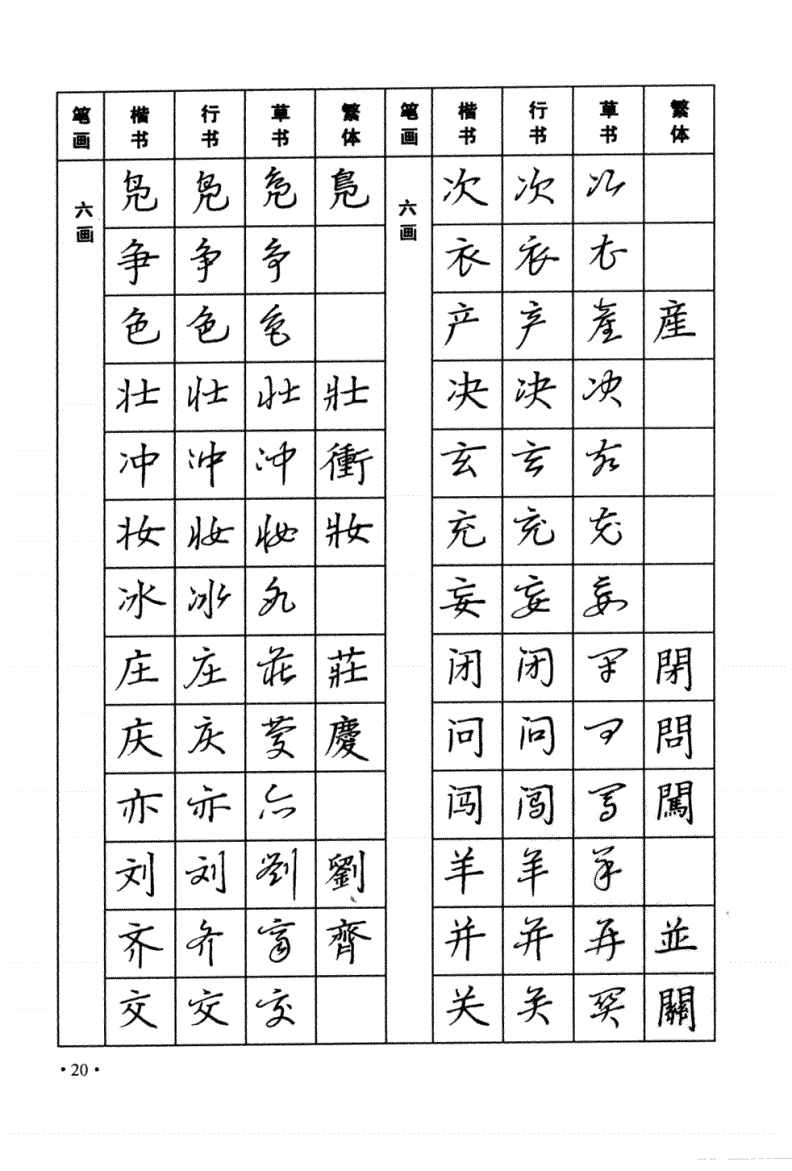 笔画 楷书 行书 草书 繁体
六画
凫 凫 凫 鳧
争 争 争
色 色 色
壮 壮 壮 壯
冲 冲 冲 衝
妆 妆 妆 妝
冰 冰 冰
庄 庄 莊 莊
庆 庆 慶 慶
亦 亦 亦
刘 刘 劉 劉
齐 齐 齊 齊
交 交 交
笔画 楷书 行书 草书 繁体
六画
次 次 次
衣 衣 衣
产 产 産 産
决 决 决
玄 玄 玄
充 充 充
妄 妄 妄
闭 闭 閉 閉
问 问 問 問
闯 闯 闖 闖
羊 羊 羊
并 并 并 並
关 关 關 關
·20·